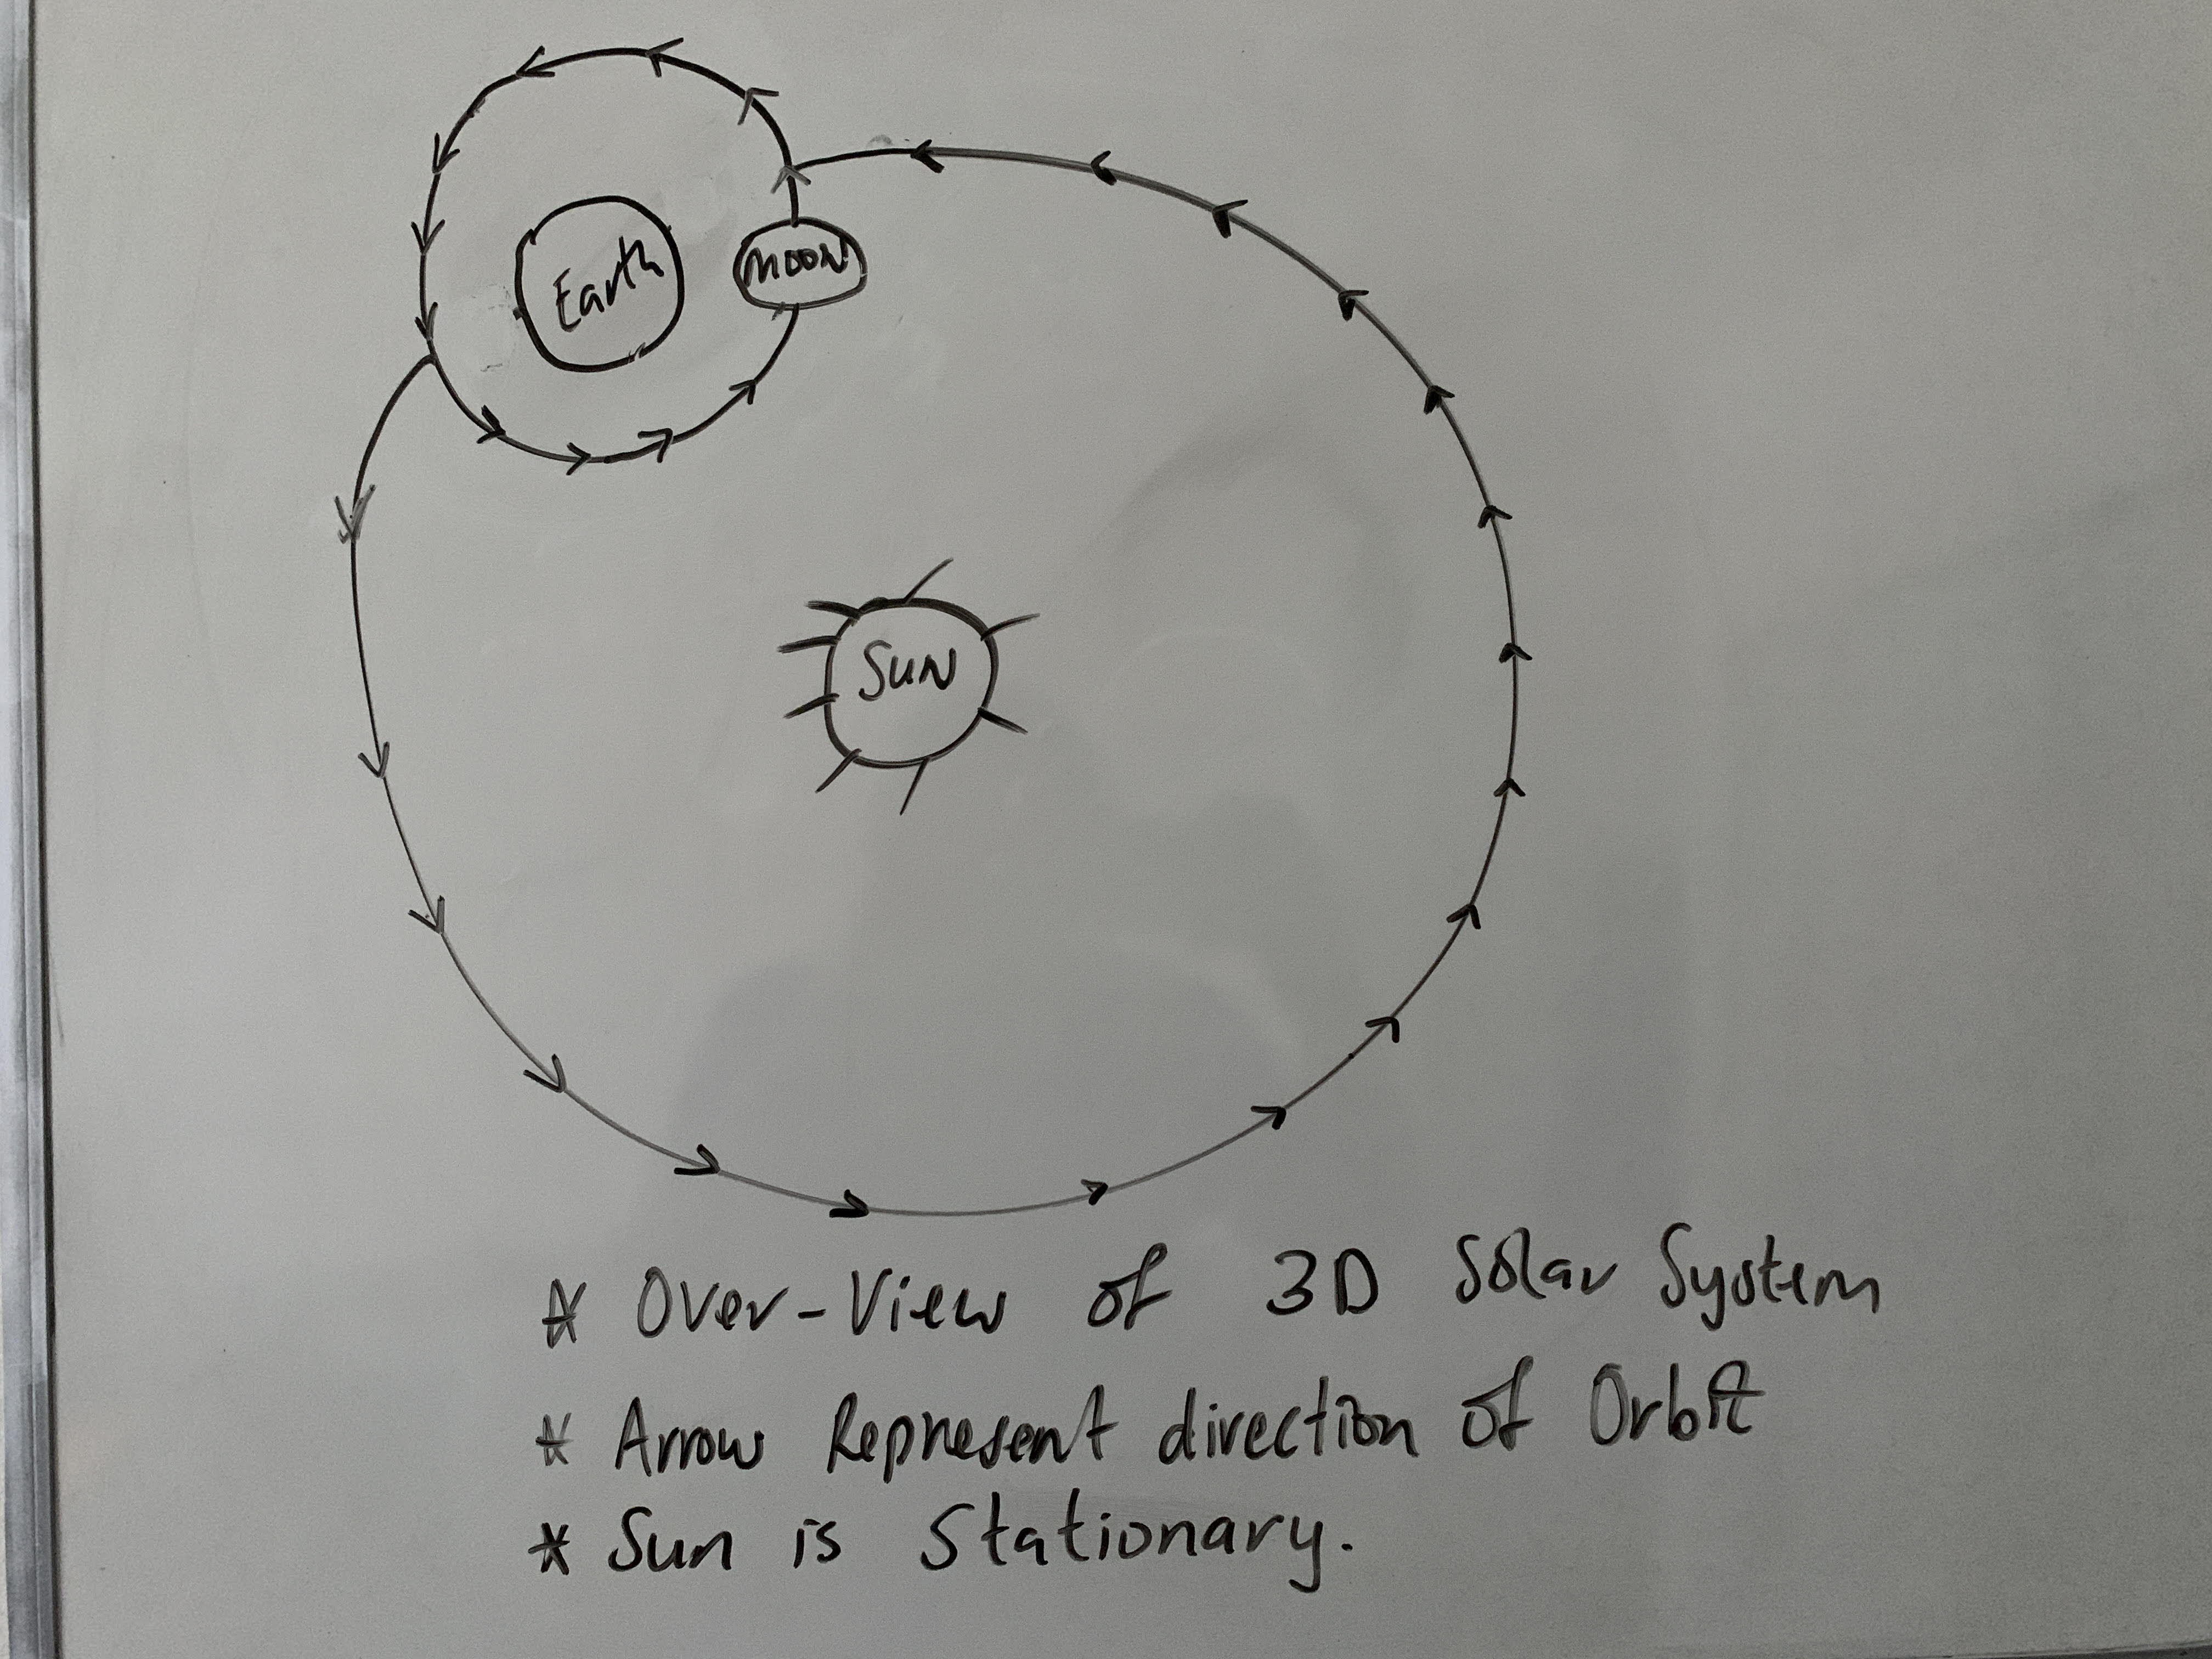 Earth
MOON
SUN
* Over-View of 3D Solar System
* Arrow Represent direction of Orbit
* Sun is Stationary.